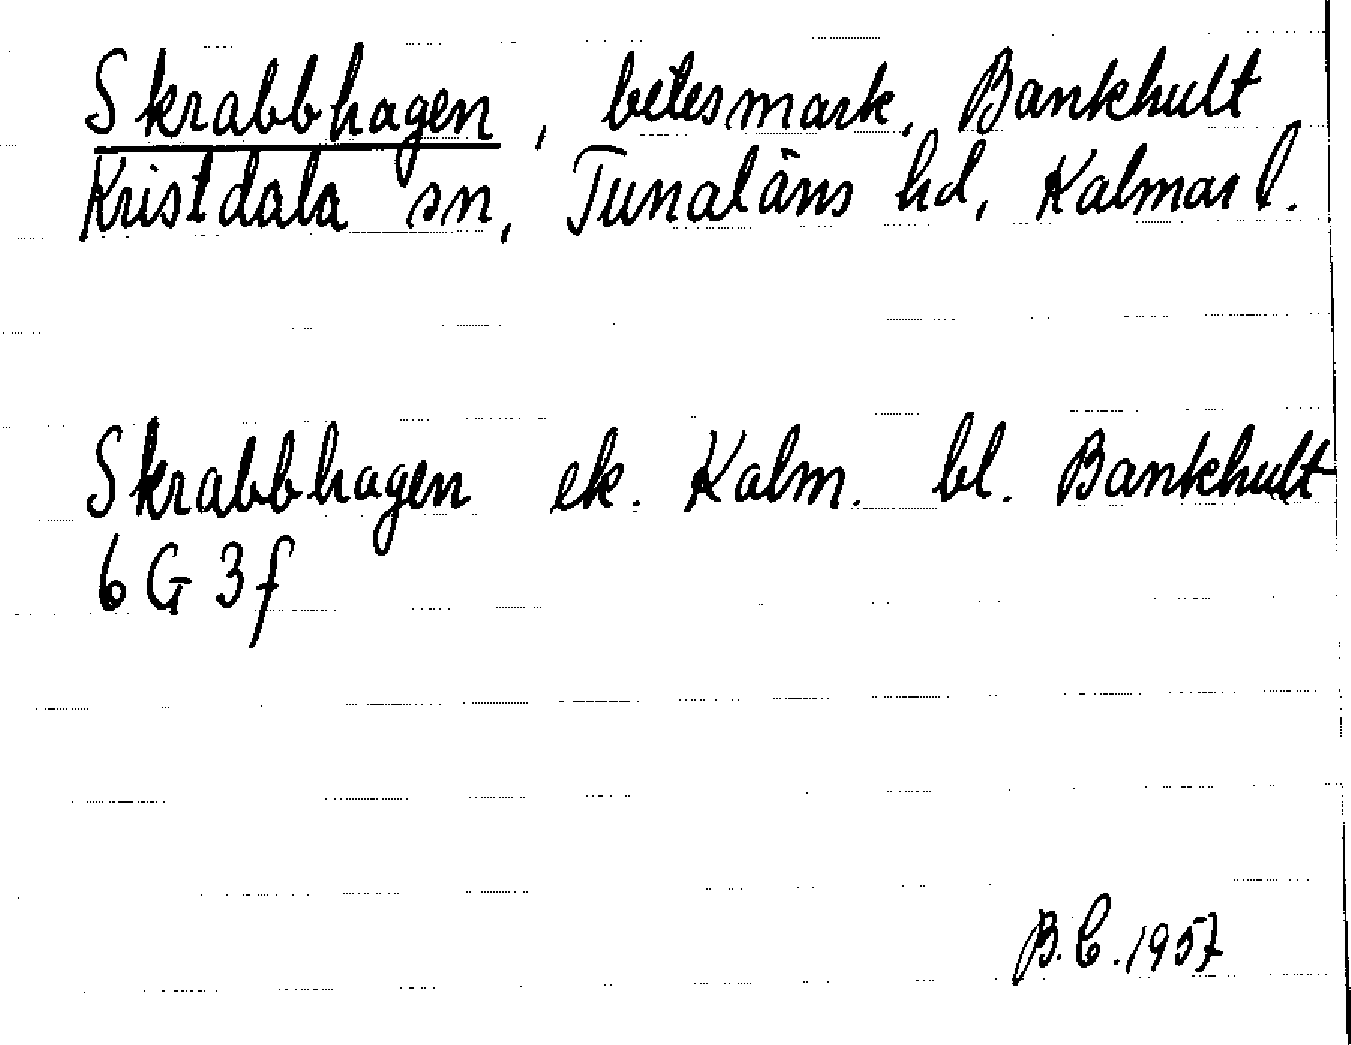 Skrabbhagen, betesmark, Bankhult
Kristdala sn, Tunaläns hd, Kalmar l.
Skrabbhagen ek. Kalm. bl. Bankhult
6 G 3 f
B.C. 1957